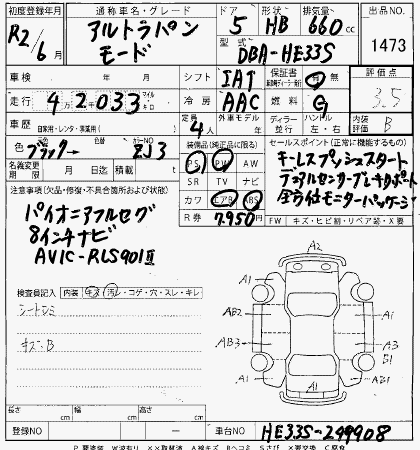 初度登録年月 通称車名・グレード ドア 形状 排気量 出品NO
R2/6月 アルトラパン モード 5 HB 660cc 1473
型式 DBA-HE33S
車検 年 月 シフト IAT 保証書 有 無 評価点
走行 42033 マイル キロ 冷房 AAC 燃料 G 3.5
車歴 自家用・レンタ・事業用( ) 定員 4人 外車モデル 年 ディーラー 並行 ハンドル 左・右 内装 B
色 ブラック カラーNO ZJ3 装備品(純正品に限る) セールスポイント(正常に機能するもの)
名義変更期限 月 日 積載 PS PW AW キーレスプッシュスタート
注意事項(欠品・修復・不具合箇所および状態) SR TV ナビ デュアルセンサーブレーキサポート
パイオニアフルセグ カワ エアB ABS 全方位モニターパッケージ
8インチナビ R券 7950円 FW キズ・ヒビ割・リペア跡・X要
AVIC-RLS901Ⅲ
検査員記入 内装 キズ・汚レ・コゲ・穴・スレ・キレ
シートシミ
キズ・B
A2
A1 A1
AB2 A1
AB3 A3
B1
A1 AB1
B1
長さ cm 幅 cm 高さ cm
登録NO ー 車台NO HE33S-249908